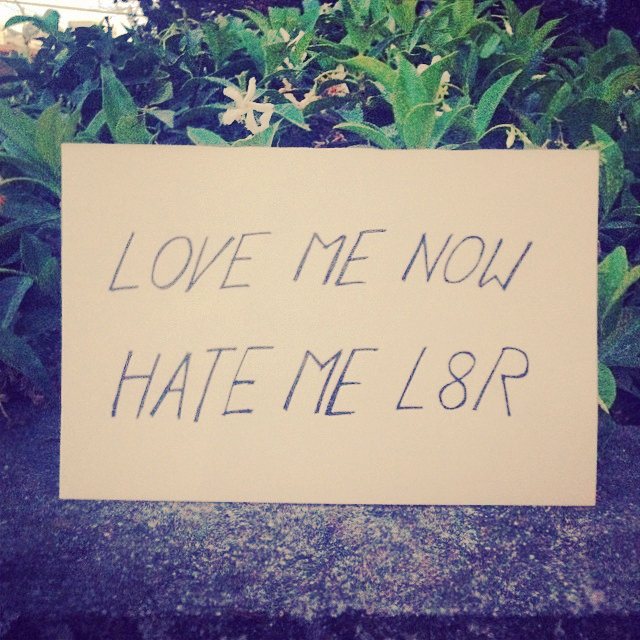 LOVE ME NOW
HATE ME L8R